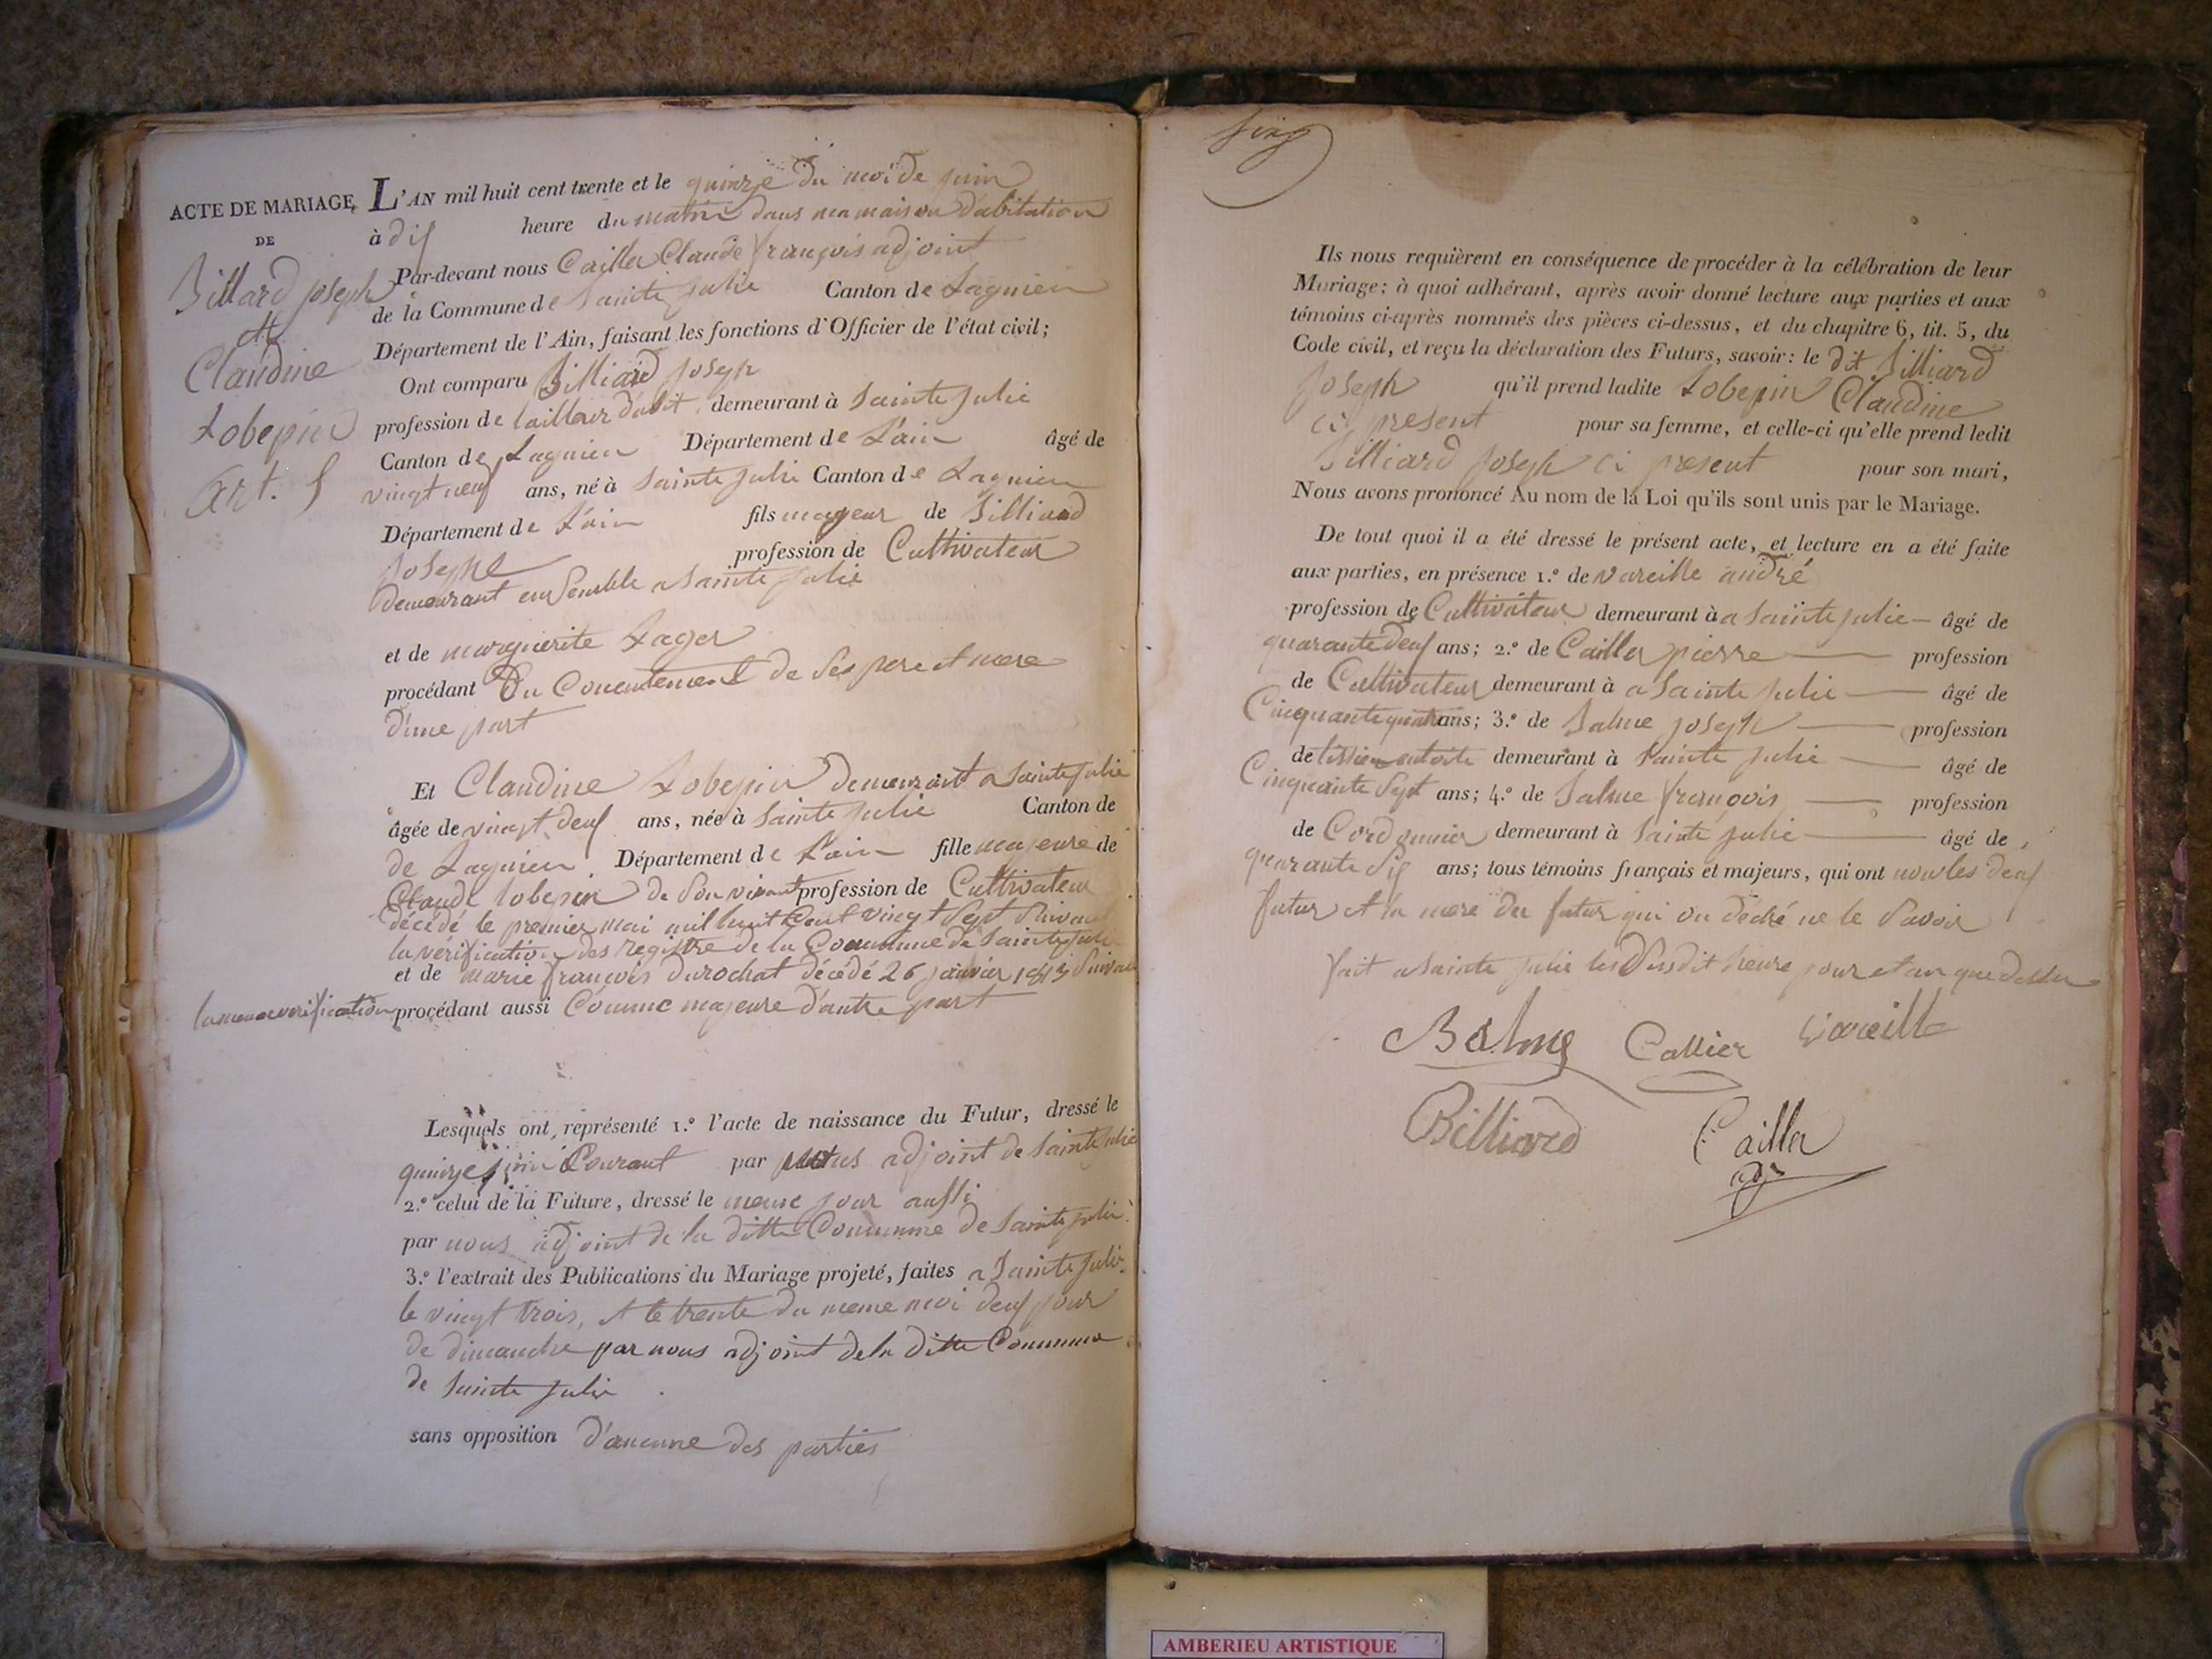 ACTE DE MARIAGE
DE
Billard joseph
et
Claudine
Lobepin
art. 5
L'AN mil huit cent trente et le quinze du moi de juin
à dix heure du matin dans ma maison d'abitation
Par-devant nous Cailler Claude françois adjoint
de la Commune de Sainte julie Canton de Lagnieu
Département de l'Ain, faisant les fonctions d'Officier de l'état civil;
Ont comparu Billiard Joseph
profession de tailleur d'abit demeurant à Sainte Julie
Canton de Lagnieu Département de L'ain âgé de
vingt neuf ans, né à Sainte Julie Canton de Lagnieu
Département de L'ain fils mageur de Billiard
Joseph profession de Cultivateur
demeurant enSemble a Sainte julie
et de marguerite Lager
procédant Du Concentement de Ses pere et mere
d'une part
Et Claudine Lobepin demeurant a Sainte Julie
âgée de vingt deux ans, née à Sainte Julie Canton de
de Lagnieu Département de L'ain fille majeure de
Claude lobepin de Son vivant profession de Cultivateur
décédé le premier mai mil huit Cent vingt Sept Suivant
la vérification des registre de la Commune de Sainte Julie
et de marie françois durochat décédé 26 janvier 1813 Suivant
la meme verification procédant aussi Comme majeure d'autre part
Lesquels ont représenté 1.º l'acte de naissance du Futur, dressé le
quinze juin Courant par nous adjoint de Sainte Julie
2.º celui de la Future, dressé le meme jour aussi
par nous adjoint de la ditte Commune de Sainte julie
3.º l'extrait des Publications du Mariage projeté, faites a Sainte Julie
le vingt trois, et le trente du meme moi deux jour
de dimanche par nous adjoint de la ditte Commune
de Sainte Julie
sans opposition d'aucune des parties
cinq
Ils nous requièrent en conséquence de procéder à la célébration de leur
Mariage; à quoi adhérant, après avoir donné lecture aux parties et aux
témoins ci-après nommés des pièces ci-dessus, et du chapitre 6, tit. 5, du
Code civil, et reçu la déclaration des Futurs, savoir: le dit Billiard
Joseph qu'il prend ladite Lobepin Claudine
ci present pour sa femme, et celle-ci qu'elle prend ledit
Billiard Joseph ci present pour son mari,
Nous avons prononcé Au nom de la Loi qu'ils sont unis par le Mariage.
De tout quoi il a été dressé le présent acte, et lecture en a été faite
aux parties, en présence 1.º de vareille andré
profession de Cultivateur demeurant à a Sainte julie âgé de
quarante deux ans; 2.º de Cailler pierre profession
de Cultivateur demeurant à a Sainte Julie âgé de
Cinquante quatre ans; 3.º de Balme joseph profession
de tissier en toile demeurant à Sainte Julie âgé de
Cinquante Sept ans; 4.º de Balme françois profession
de Cordonnier demeurant à Sainte Julie âgé de
quarante Six ans; tous témoins français et majeurs, qui ont non les deux
futur et la mere du futur qui on déclré ne le Savoir
fait a Sainte Julie les Susdit heure jour et an que dessu
Balme Callier Vareille
Billiard Cailler
adj
AMBERIEU ARTISTIQUE